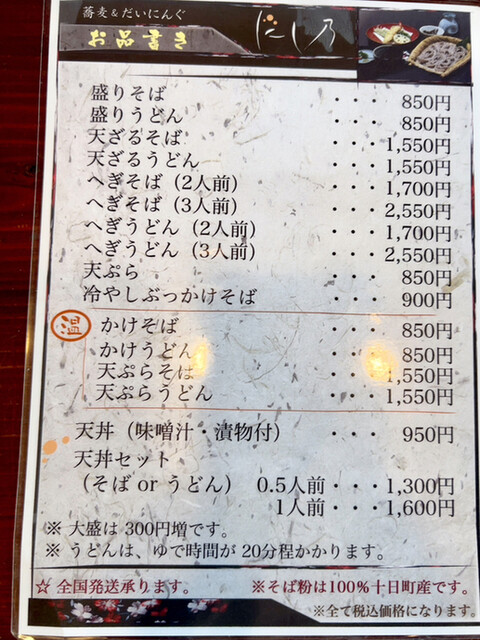 蕎麦＆だいにんぐ
お品書き
にし乃
盛りそば ・・・ 850円
盛りうどん ・・・ 850円
天ざるそば ・・・1,550円
天ざるうどん ・・・1,550円
へぎそば（2人前） ・・・1,700円
へぎそば（3人前） ・・・2,550円
へぎうどん（2人前） ・・・1,700円
へぎうどん（3人前） ・・・2,550円
天ぷら ・・・ 850円
冷やしぶっかけそば ・・・ 900円
温
かけそば ・・・ 850円
かけうどん ・・・ 850円
天ぷらそば ・・・1,550円
天ぷらうどん ・・・1,550円
天丼（味噌汁・漬物付） ・・・ 950円
天丼セット
（そば or うどん） 0.5人前・・・1,300円
1人前・・・1,600円
※ 大盛は 300円増です。
※ うどんは、ゆで時間が 20分程かかります。
☆ 全国発送承ります。 ※そば粉は100%十日町産です。
※全て税込価格になります。